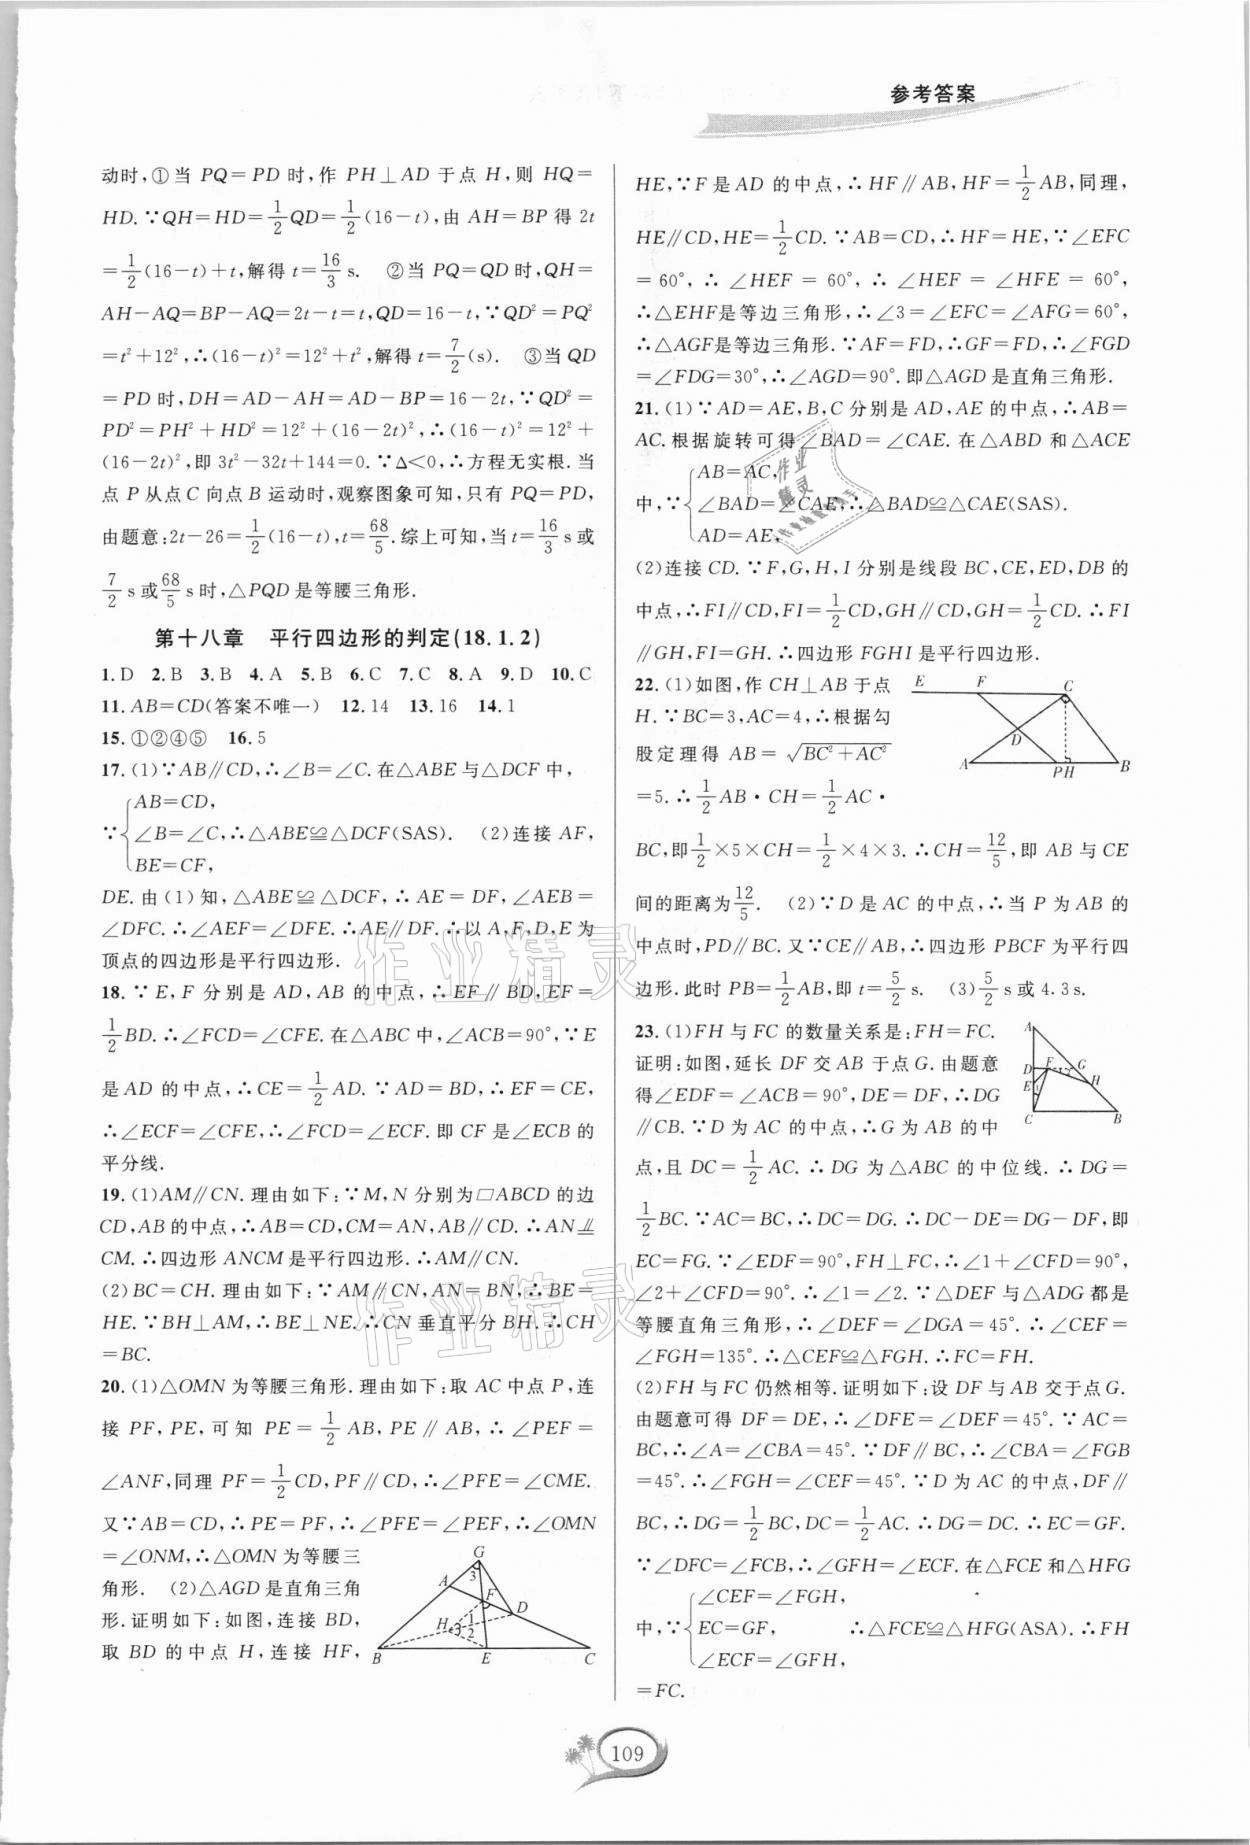 参考答案
动时,①当 PQ=PD 时,作 PH⊥AD 于点 H,则 HQ=
HD.∵QH=HD=1/2QD=1/2(16-t),由 AH=BP 得 2t
=1/2(16-t)+t,解得 t=16/3 s. ②当 PQ=QD 时,QH=
AH-AQ=BP-AQ=2t-t=t,QD=16-t,∵QD²=PQ²
=t²+12²,∴(16-t)²=12²+t²,解得 t=7/2(s). ③当 QD
=PD 时,DH=AD-AH=AD-BP=16-2t,∵QD²=
PD²=PH²+HD²=12²+(16-2t)²,∴(16-t)²=12²+
(16-2t)²,即 3t²-32t+144=0.∵Δ<0,∴方程无实根.当
点 P 从点 C 向点 B 运动时,观察图象可知,只有 PQ=PD,
由题意:2t-26=1/2(16-t),t=68/5.综上可知,当 t=16/3 s或
7/2 s或68/5 s时,△PQD 是等腰三角形.
第十八章 平行四边形的判定(18.1.2)
1.D 2.B 3.B 4.A 5.B 6.C 7.C 8.A 9.D 10.C
11.AB=CD(答案不唯一) 12.14 13.16 14.1
15.①②④⑤ 16.5
17.(1)∵AB∥CD,∴∠B=∠C.在△ABE 与△DCF 中,
AB=CD,
∵{∠B=∠C,∴△ABE≌△DCF(SAS). (2)连接 AF,
BE=CF,
DE.由(1)知,△ABE≌△DCF,∴AE=DF,∠AEB=
∠DFC.∴∠AEF=∠DFE.∴AE∥DF.∴以 A,F,D,E 为
顶点的四边形是平行四边形.
18.∵E,F 分别是 AD,AB 的中点,∴EF∥BD,EF=
1/2BD.∴∠FCD=∠CFE.在△ABC 中,∠ACB=90°,∵E
是 AD 的中点,∴CE=1/2AD.∵AD=BD,∴EF=CE,
∴∠ECF=∠CFE,∴∠FCD=∠ECF.即 CF 是∠ECB 的
平分线.
19.(1)AM∥CN.理由如下:∵M,N 分别为▱ABCD 的边
CD,AB 的中点,∴AB=CD,CM=AN,AB∥CD.∴AN⫽
CM.∴四边形 ANCM 是平行四边形.∴AM∥CN.
(2)BC=CH.理由如下:∵AM∥CN,AN=BN,∴BE=
HE.∵BH⊥AM,∴BE⊥NE.∴CN 垂直平分 BH.∴CH
=BC.
20.(1)△OMN 为等腰三角形.理由如下:取 AC 中点 P,连
接 PF,PE,可知 PE=1/2AB,PE∥AB,∴∠PEF=
∠ANF,同理 PF=1/2CD,PF∥CD,∴∠PFE=∠CME.
又∵AB=CD,∴PE=PF,∴∠PFE=∠PEF,∴∠OMN
=∠ONM,∴△OMN 为等腰三
角形. (2)△AGD 是直角三角
形.证明如下:如图,连接 BD,
取 BD 的中点 H,连接 HF,
G
3
A
F
H
1
2
D
B
E
C
HE,∵F 是 AD 的中点,∴HF∥AB,HF=1/2AB,同理,
HE∥CD,HE=1/2CD.∵AB=CD,∴HF=HE,∵∠EFC
=60°,∴∠HEF=60°,∴∠HEF=∠HFE=60°,
∴△EHF是等边三角形,∴∠3=∠EFC=∠AFG=60°,
∴△AGF是等边三角形.∵AF=FD,∴GF=FD,∴∠FGD
=∠FDG=30°,∴∠AGD=90°.即△AGD 是直角三角形.
21.(1)∵AD=AE,B,C 分别是 AD,AE 的中点,∴AB=
AC.根据旋转可得∠BAD=∠CAE.在△ABD 和△ACE
AB=AC,
中,∵{∠BAD=∠CAE,∴△BAD≌△CAE(SAS).
AD=AE,
(2)连接 CD.∵F,G,H,I 分别是线段 BC,CE,ED,DB 的
中点,∴FI∥CD,FI=1/2CD,GH∥CD,GH=1/2CD.∴FI
∥GH,FI=GH.∴四边形 FGHI 是平行四边形.
22.(1)如图,作 CH⊥AB 于点
H.∵BC=3,AC=4,∴根据勾
股定理得 AB=√(BC²+AC²)
=5.∴1/2AB·CH=1/2AC·
E
F
C
D
A
P
H
B
BC,即1/2×5×CH=1/2×4×3.∴CH=12/5,即 AB 与 CE
间的距离为12/5. (2)∵D 是 AC 的中点,∴当 P 为 AB 的
中点时,PD∥BC.又∵CE∥AB,∴四边形 PBCF 为平行四
边形.此时 PB=1/2AB,即 t=5/2 s. (3)5/2 s或 4.3 s.
23.(1)FH 与 FC 的数量关系是:FH=FC.
证明:如图,延长 DF 交 AB 于点 G.由题意
得∠EDF=∠ACB=90°,DE=DF,∴DG
∥CB.∵D 为 AC 的中点,∴G 为 AB 的中
A
D
F
G
E
1
2
H
C
B
点,且 DC=1/2AC.∴DG 为△ABC 的中位线.∴DG=
1/2BC.∵AC=BC,∴DC=DG.∴DC-DE=DG-DF,即
EC=FG.∵∠EDF=90°,FH⊥FC,∴∠1+∠CFD=90°,
∠2+∠CFD=90°.∴∠1=∠2.∵△DEF 与△ADG 都是
等腰直角三角形,∴∠DEF=∠DGA=45°.∴∠CEF=
∠FGH=135°.∴△CEF≌△FGH.∴FC=FH.
(2)FH 与 FC 仍然相等.证明如下:设 DF 与 AB 交于点 G.
由题意可得 DF=DE,∴∠DFE=∠DEF=45°.∵AC=
BC,∴∠A=∠CBA=45°.∵DF∥BC,∴∠CBA=∠FGB
=45°.∴∠FGH=∠CEF=45°.∵D 为 AC 的中点,DF∥
BC,∴DG=1/2BC,DC=1/2AC.∴DG=DC.∴EC=GF.
∵∠DFC=∠FCB,∴∠GFH=∠ECF.在△FCE 和△HFG
∠CEF=∠FGH,
中,∵{EC=GF, ∴△FCE≌△HFG(ASA).∴FH
∠ECF=∠GFH,
=FC.
109
作业精灵
作业精灵
作业精灵